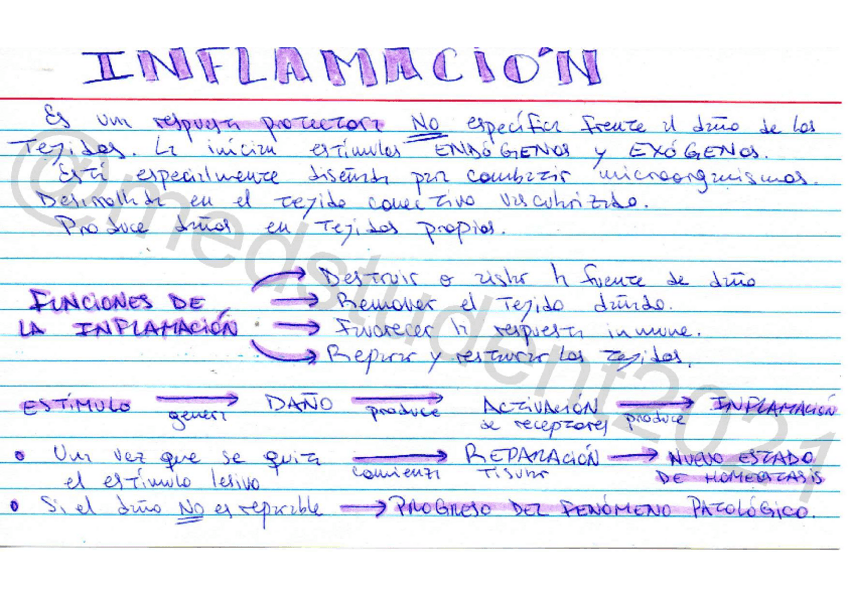 INFLAMACIÓN
Es una respuesta protectora NO específica frente al daño de los
Tejidos. La inician estímulos ENDÓGENOS y EXÓGENOS.
Está especialmente diseñada para combatir microorganismos.
Desarrollada en el tejido conectivo vascularizado.
Produce daños en Tejidos propios.
FUNCIONES DE
LA INFLAMACIÓN
→ Destruir o aislar la fuente de daño
→ Remover el Tejido dañado.
→ Favorecer la respuesta inmune.
→ Reparar y restaurar los tejidos.
ESTÍMULO → genera DAÑO → produce ACTIVACIÓN de receptores → produce INFLAMACIÓN
• Una vez que se quita → comienza REPARACIÓN → NUEVO ESTADO
el estímulo lesivo Tisular DE HOMEOSTASIS
• Si el daño NO es reparable → PROGRESO DEL FENÓMENO PATOLÓGICO.
@medstudent2021